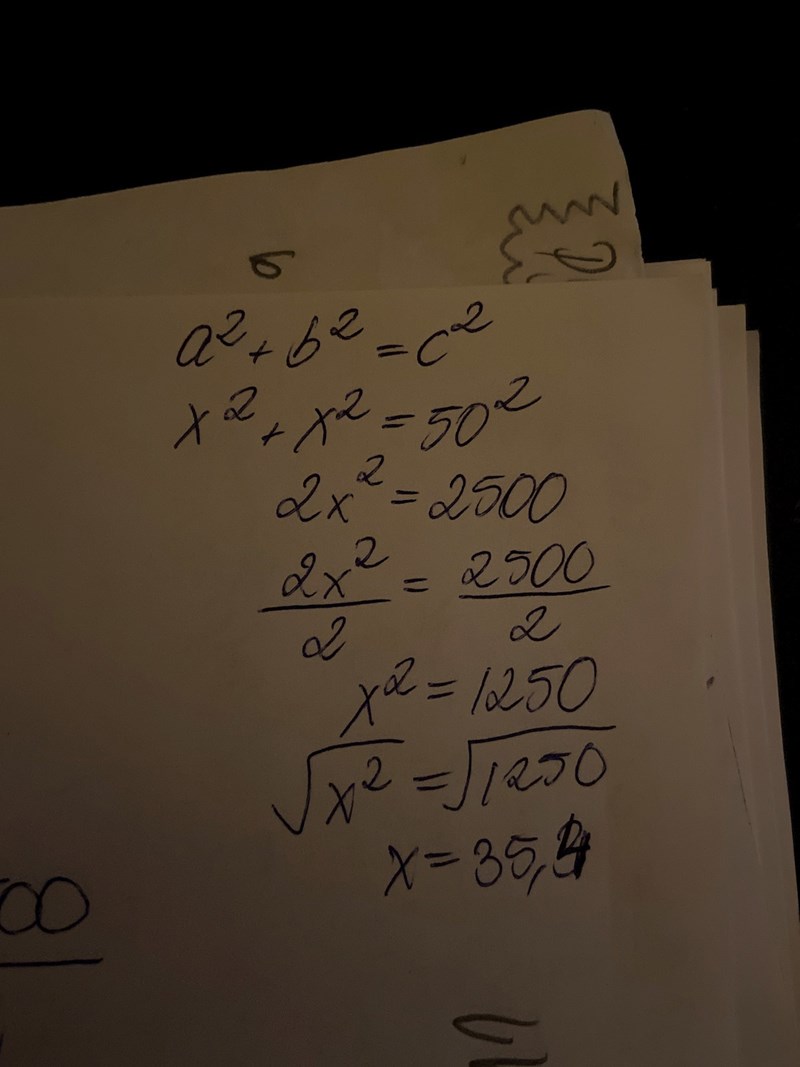 a² + b² = c²
x² + x² = 50²
2x² = 2500
2x²/2 = 2500/2
x² = 1250
√x² = √1250
x = 35,4
00